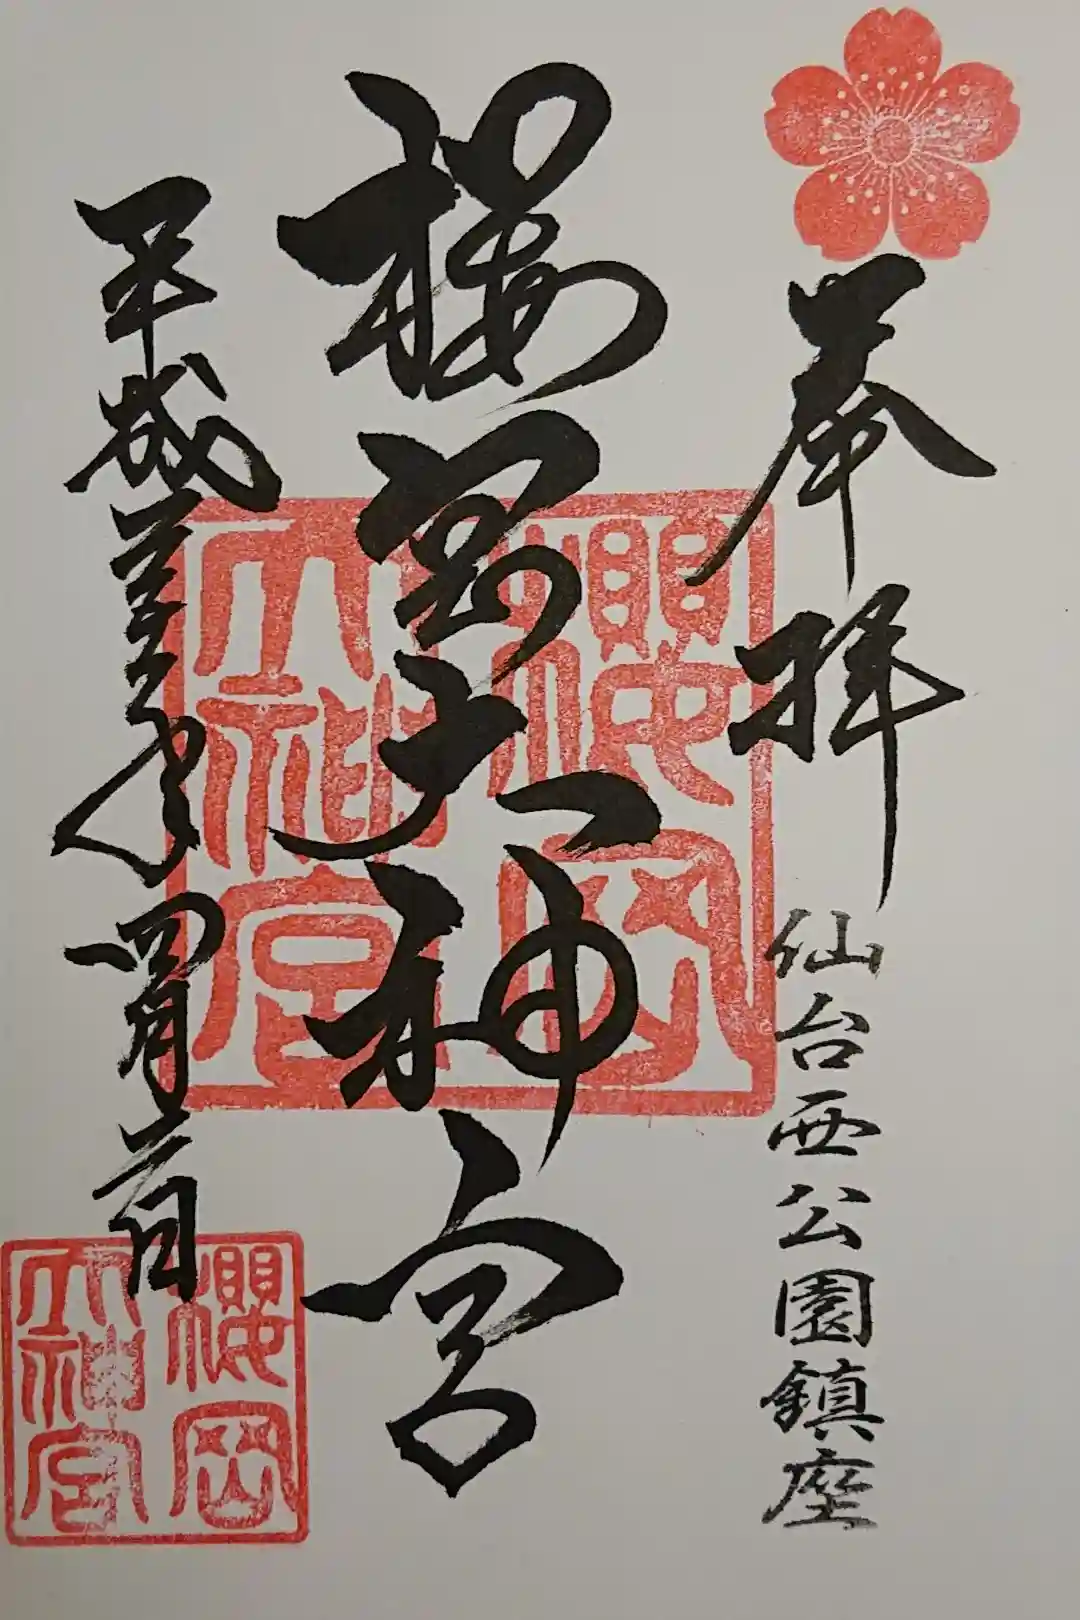 奉拝
仙台西公園鎮座
櫻岡大神宮
平成三十一年四月日
櫻岡
大神宮
櫻岡
大神宮